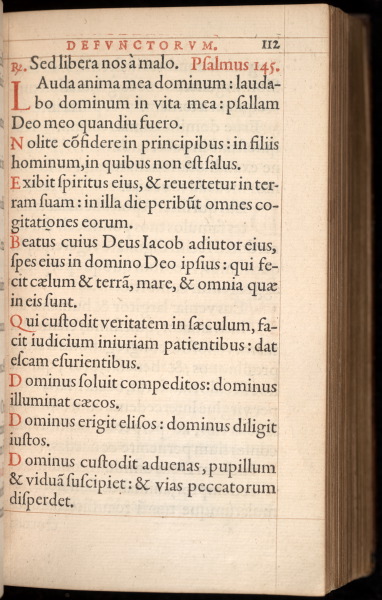 DEFVNCTORVM. 112
℞. Sed libera nos à malo. Psalmus 145.
LAuda anima mea dominum: lauda-
bo dominum in vita mea: psallam
Deo meo quandiu fuero.
Nolite cõfidere in principibus: in filiis
hominum, in quibus non est salus.
Exibit spiritus eius, & reuertetur in ter-
ram suam: in illa die peribũt omnes co-
gitationes eorum.
Beatus cuius Deus Iacob adiutor eius,
spes eius in domino Deo ipsius: qui fe-
cit cælum & terrã, mare, & omnia quæ
in eis sunt.
Qui custodit veritatem in sæculum, fa-
cit iudicium iniuriam patientibus: dat
escam esurientibus.
Dominus soluit compeditos: dominus
illuminat cæcos.
Dominus erigit elisos: dominus diligit
iustos.
Dominus custodit aduenas, pupillum
& viduã suscipiet: & vias peccatorum
disperdet.